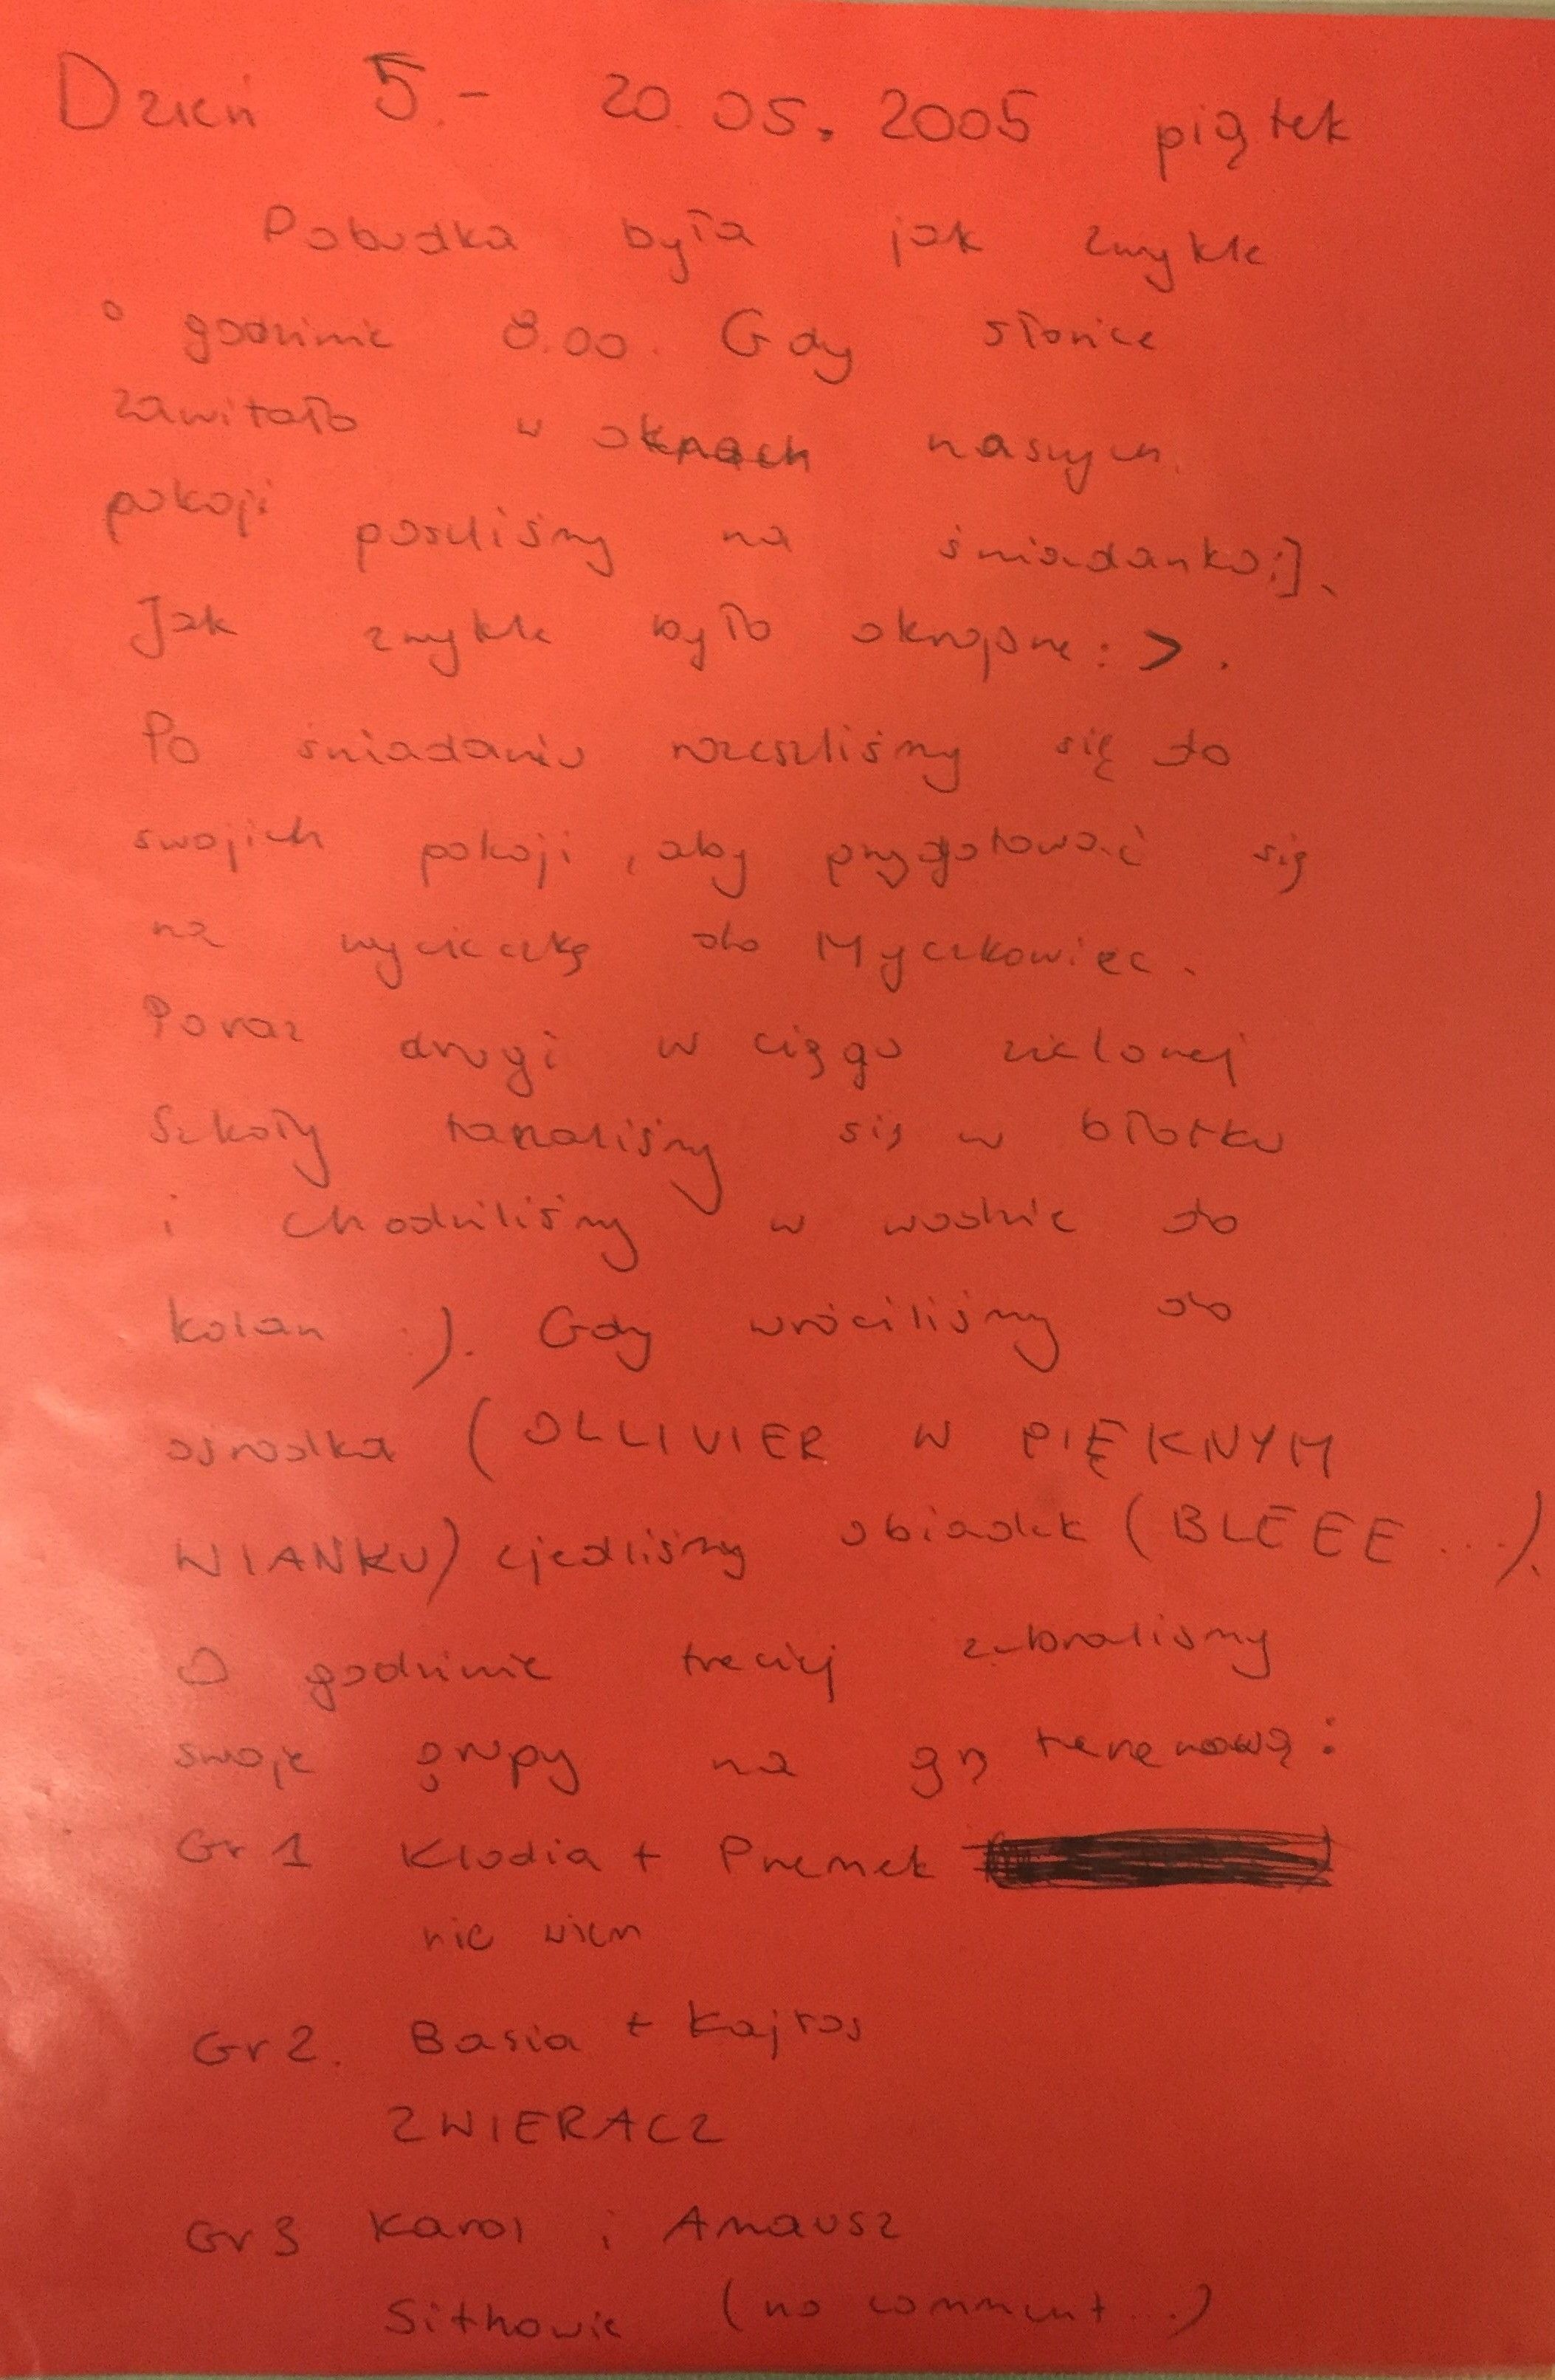 Dzień 5.- 20.05.2005 piątek
Pobudka była jak zwykle
o godzinie 8.00. Gdy słońce
zawitało w oknach naszych
pokoji poszliśmy na śniadanko:].
Jak zwykle było okropne:>.
Po śniadaniu rozeszliśmy się do
swojich pokoji, aby przygotować się
na wycieczkę do Myczkowiec.
Poraz drugi w ciągu zielonej
Szkoły taplaliśmy się w błotku
i chodziliśmy w wodzie do
kolan :). Gdy wróciliśmy do
ośrodka (OLLIVIER W PIĘKNYM
WIANKU) zjedliśmy obiadek (BLEEE...).
O godzinie trzeciej zebraliśmy
swoje grupy na grę terenową:
Gr 1 Klodia + Przemek
nie wiem
Gr 2. Basia + Kajtos
ZWIERACZ
Gr 3 Karol i Amausz
Sithowie (no comment...)